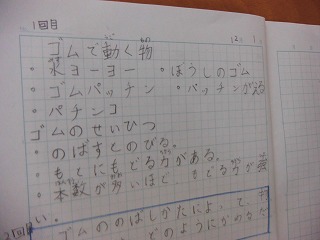 1回目
ゴムで動く物
・水ヨーヨー ・ぼうしのゴム
・ゴムパッチン ・パッチンがえる
・パチンコ
ゴムのせいひつ
・のばすとのびる。
・もとにもどる力がある。
・本数が多いほど、もどる力が強
い。
2回目
ゴムののばしかたによって、
どのように